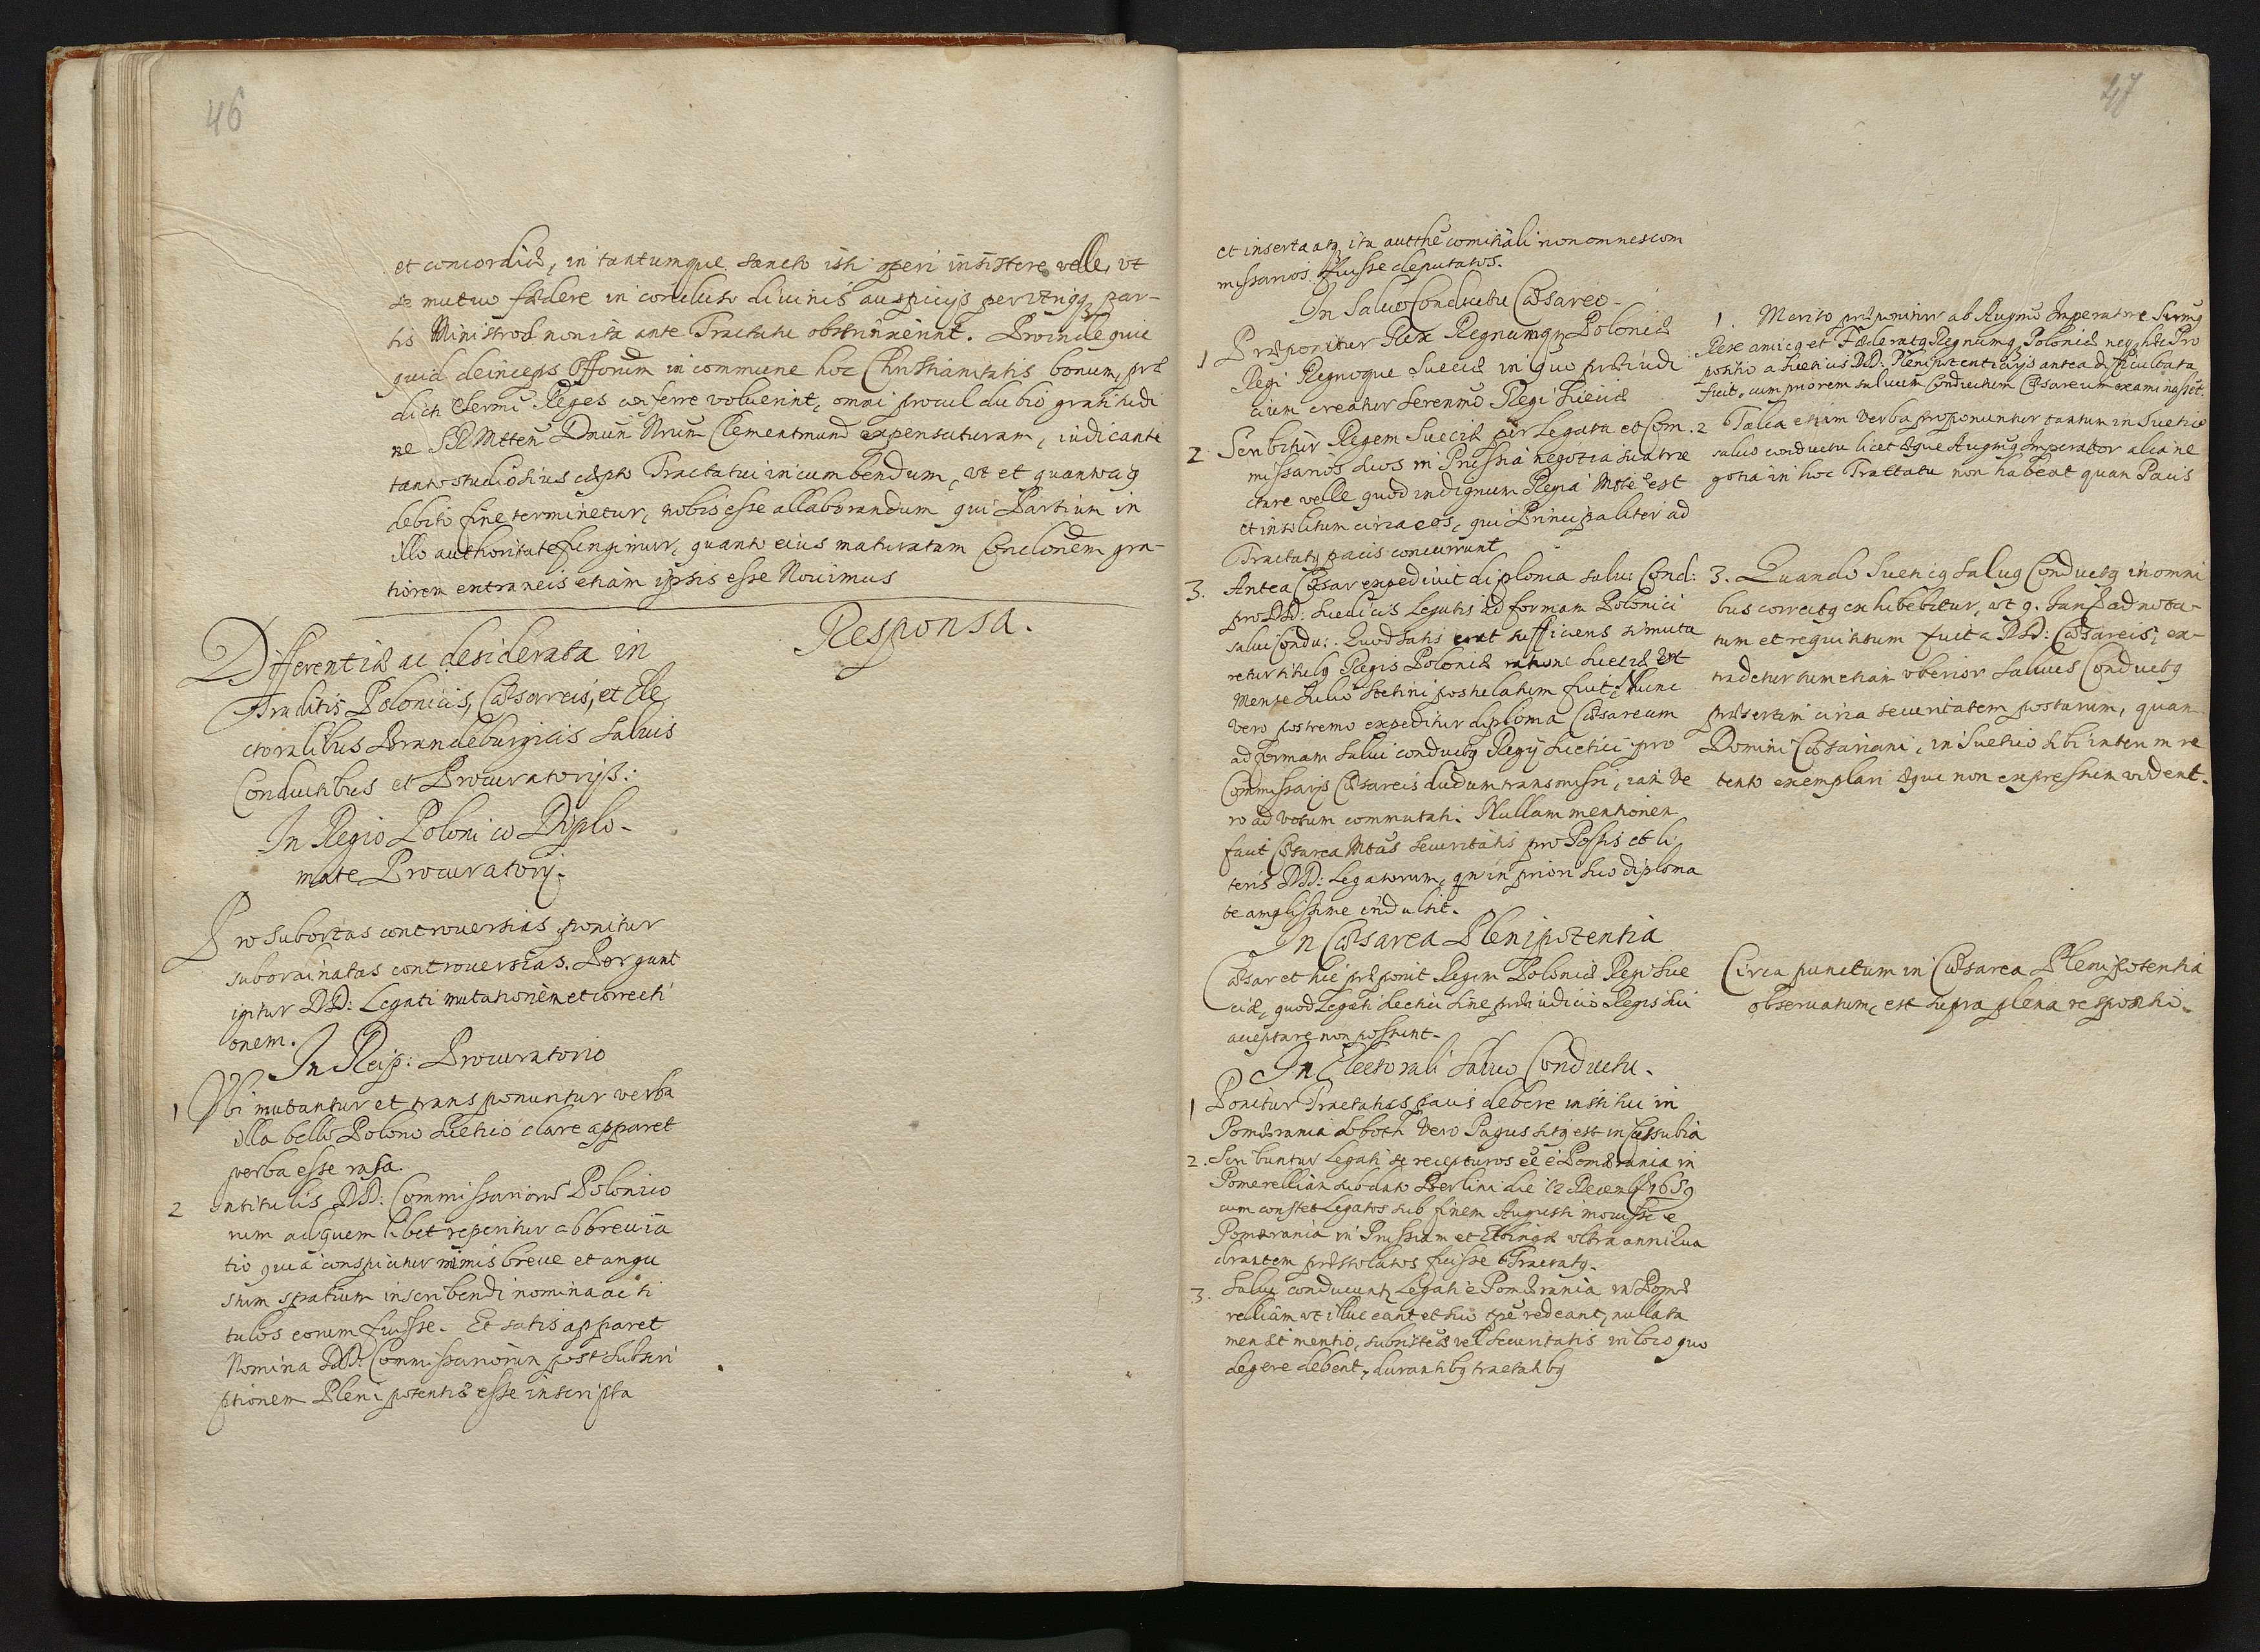 46
et concordiæ, in tantumque sancto isti operi insistere velle, vt
se mutuo fœdere in concluso diuinis auspicijs per vtriq3 par-
tis Ministros monita ante Tractatu obstrinxerint. Proinde que
quid deinceps Offorum in commune hoc Christianitatis bonum, præ
dicti Sermi Reges conferre voluerint, omni procul dubio gratitudi
ne SRMttem Dnum Nrum Clementmum expensaturam, iudicanti
tanto studiosius cæpto Tractatui incumbendum, vt et quantociq
debito fine terminetur, nobis esse allaborandum qui Partium in
illo authoritate fungimur, quanto eius maturatam Conclonem gra-
tiorem extraneis etiam ipsis esse Nouimus
Responsa.
Differentiæ ac desiderata in
Traditis Polonicis, Cæsareis, et Ele
ctoralibus Brandeburgicis Saluis
Conductibus et Procuratorijs:
In Regio Polonico Diplo-
mate Procuratorij.
Pro subortas controuersias ponitur
subordinatas controuersias. Pergunt
igitur DD: Legati mutationem et correcti
onem.
In Reip: Procuratorio
1 Vbi mutantur et transponuntur verba
illa bello Polono Suetico clare apparet
verba esse rasa.
2 Intitulis DD: Commissariorum Polonico
rum ad quem libet reperitur abbreuia
tio quia conspicitur nimis breue et angu
stum spatium inscribendi nomina ac ti
tulos eorum fuisse. Et satis apparet
Nomina DD: Commissariorum post subscri
ptionem Plenipotentiæ esse inscripta
47
et inserta atq ita autthe comitiali non omnes com
missarios fuisse deputatos.
In Saluo Conductu Cæsareo.
1 Præponitur Rex Regnumq Poloniæ
Regi Regnoque Sueciæ in quo præiudi
cium creatur Serenmo Regi Sueciæ
2 Scribitur Regem Sueciæ per Legatu et Com
missarios suos in Prussia negotia sua tra
ctare velle quod indignum Regia Mtte est
et insolitum circa eos, qui Principaliter ad
Tractatq pacis concurrunt
3. Antea Cæsar expediuit diploma salu: Cond:
pro DD: Suedicis Legatis ad formam Polonici
salui Condu: Quod satis erat sufficiens si muta
retur titulq Regis Poloniæ ratione Sueciæ Vt
Mense Julio Stetini postulatum fuit, Nunc
vero postremo expeditur diploma Cæsareum
ad formam salui conductq Regij Suetici pro
Commissarijs Cæsareis dudum transmissi, iam Ve
ro ad votum commutati. Nullam mentionem
facit Cæsarea Mtas securitatis pro Postis et li
teris DD: Legatorum, qn in priori suo diploma
te amplissime indulsit.
In Cæsarea Plenipotentia
Cæsar et hic præponit Regem Poloniæ Regi Sue
ciæ, quod Legati Suetici sine præiudicio Regis sui
acceptare non possunt.
In Electorali Saluo Conductu.
1 Ponitur Tractatus pacis debere institui in
Pomerania Sobboth vero Pagus sitq est in Cassubia
2. Scribuntur Legati se recepturos ee e Pomerania in
Pomerelliam sub dato Berlini die 12 Decemb 1659
cum constet Legatos sub finem Augusti mouisse e
Pomerania in Prussiam et Elbingæ vltra anni Qua
drantem præstolatos fuisse Tractatq.
3. Salui conducuntq Legati e Pomerania in Pome
relliam vt illuc eant et suo tpe redeant, nulla ta
men sit mentio, subsisteæ vel securitatis in loco quo
degere debent, durantibq tractatibq
1. Merito præponitur ab Augmo Imperatore Sermq
Rex amicq et Fœderatq Regnumq Poloniæ neq hæc Pro
positio a Sueticis DD: Plenipotentiarijs antea difficultata
fuit, cum priorem saluum Conductum Cæsareum examinasset.
2 Talia etiam Verba proponuntur tantum in Suetico
saluo conductu licet æque Augmq Imperator alia ne
gotia in hoc Tractatu non habeat quam Pacis
3. Quando Sueticq Saluq Conductq in omni
bus correctq exhibebitur, vt 9. Janu adnota-
tum et requisitum fuit a DD: Cæsareis, ex-
tradetur tum etiam vberior Saluus Conductq
præsertim circa securitatem postarum, quam
Domini Cæsariani, in Suetico sibi interim re
tento exemplari æque non expressum vident.
Circa punctum in Cæsarea Plenipotentia
obseruatum, est supra plena responsio.